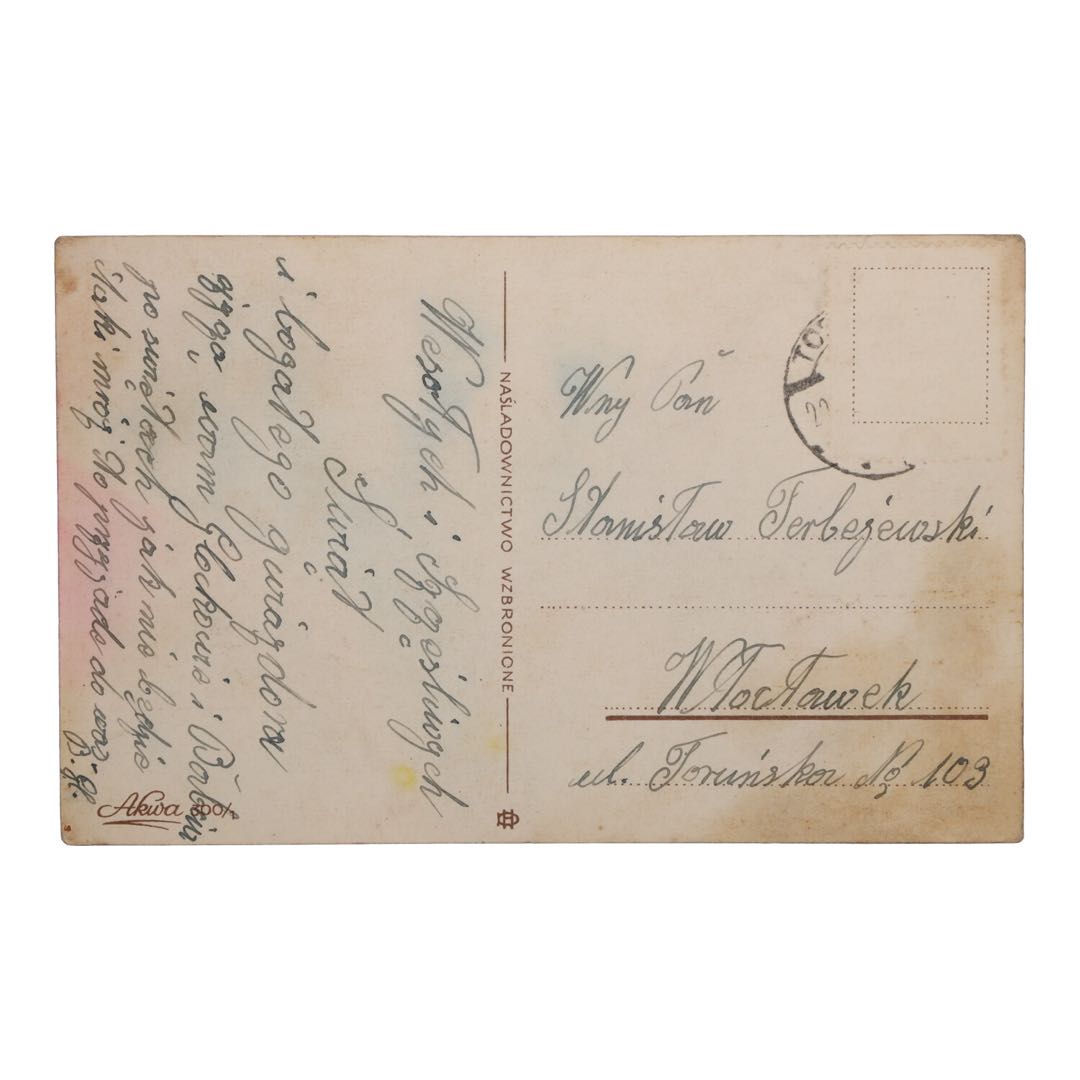 Wesołych i Szczęśliwych
Świąt
i bogatego gwiazdora
życzą wam
po świętach jak nie będzie
taki mróz to przyjadę do was
Akwa
NAŚLADOWNICTWO WZBRONIONE
Wny Pan
Stanisław Terbejewski
Włocławek
ul. Toruńska № 103